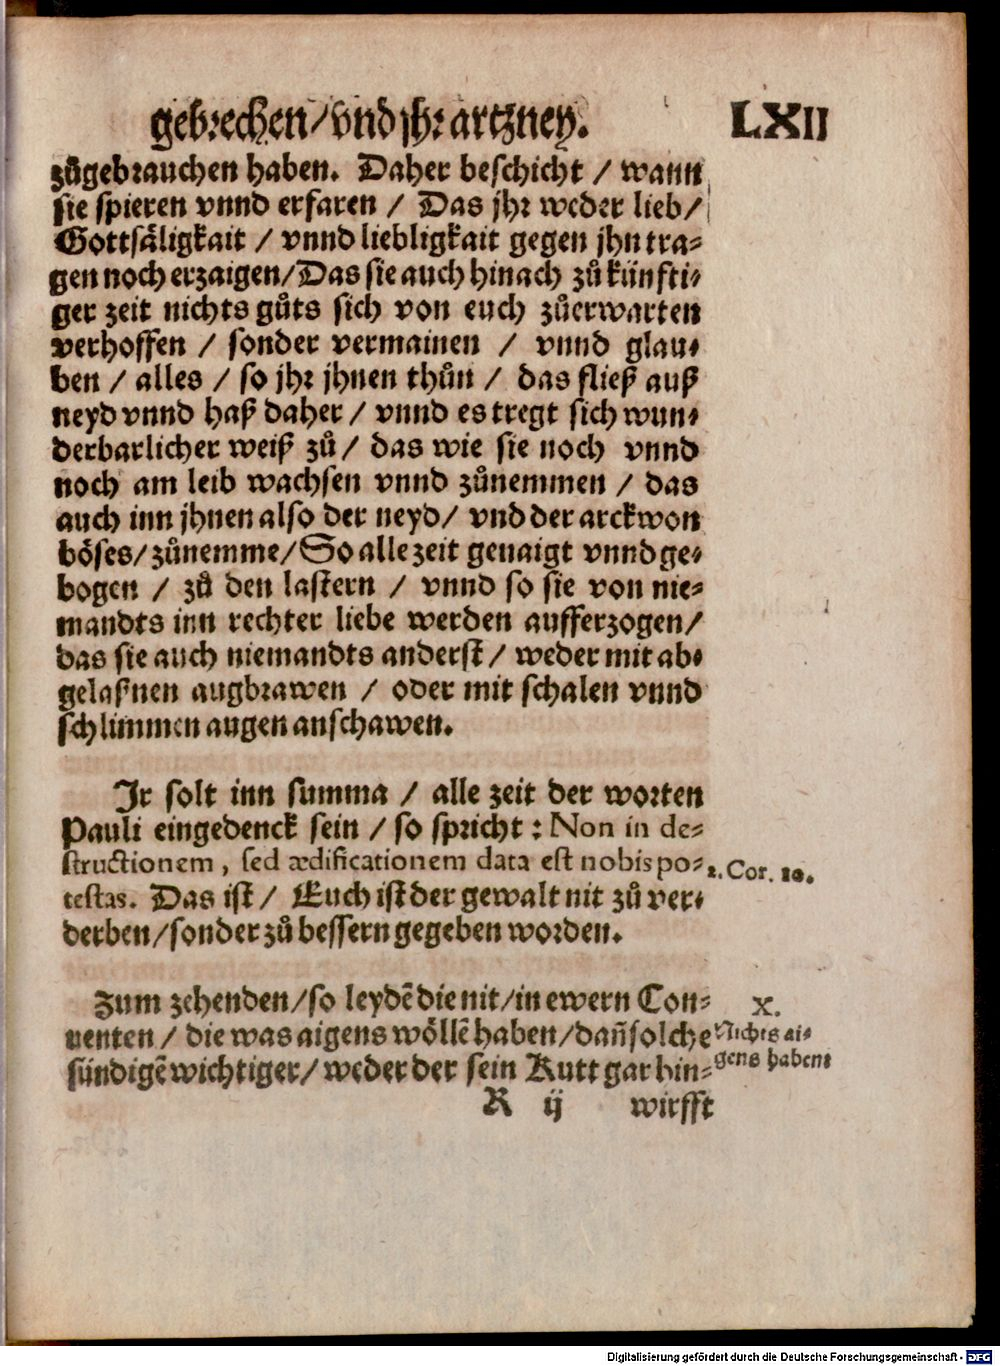 gebrechen/vnd jhr artzney. LXII
zůgebrauchen haben. Daher beschicht / wann
sie spieren vnnd erfaren / Das jhr weder lieb/
Gottsäligkait / vnnd liebligkait gegen jhn tra-
gen noch erzaigen/Das sie auch hinach zů künfti-
ger zeit nichts gůts sich von euch zůerwarten
verhoffen / sonder vermainen / vnnd glau-
ben / alles / so jhr jhnen thůn / das fließ auß
neyd vnnd haß daher / vnnd es tregt sich wun-
derbarlicher weiß zů / das wie sie noch vnnd
noch am leib wachsen vnnd zůnemmen / das
auch inn jhnen also der neyd/ vnd der arckwon
böses/zůnemme/So alle zeit genaigt vnnd ge-
bogen / zů den lastern / vnnd so sie von nie-
mandts inn rechter liebe werden aufferzogen/
das sie auch niemandts anderst / weder mit ab-
gelaßnen augbrawen / oder mit schalen vnnd
schlimmen augen anschawen.
Ir solt inn summa / alle zeit der worten
Pauli eingedenck sein / so spricht : Non in de-
structionem, sed ædificationem data est nobis po-
testas. Das ist / Euch ist der gewalt nit zů ver-
derben/sonder zů bessern gegeben worden.
2. Cor. 10.
Zum zehenden/so leydē die nit/in ewern Con-
uenten / die was aigens wöllē haben/dañ solche
sündigē wichtiger/ weder der sein Kutt gar hin-
X.
Nichts ai-
gens haben.
R ij wirfft
Digitalisierung gefördert durch die Deutsche Forschungsgemeinschaft - DFG